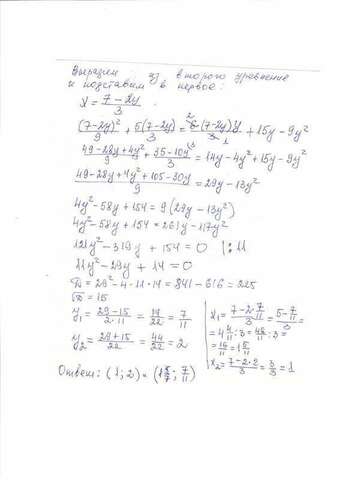 Выразим из второго уравнение
и подставим в первое:
x = (7-2y)/3
(7-2y)²/9 + 5(7-2y)/3 = 6(7-2y)y/3 + 15y - 9y²
(49-28y+4y²)/9 + (35-10y)/3 = 14y - 4y² + 15y - 9y²
(49-28y+4y²+105-30y)/9 = 29y - 13y²
4y² - 58y + 154 = 9(29y - 13y²)
4y² - 58y + 154 = 261y - 117y²
121y² - 319y + 154 = 0 |:11
11y² - 29y + 14 = 0
D = 29² - 4·11·14 = 841 - 616 = 225
√D = 15
y₁ = (29-15)/(2·11) = 14/22 = 7/11
y₂ = (29+15)/22 = 44/22 = 2
x₁ = (7-2·7/11)/3 = (5-7/11)/3 =
= 4 4/11 : 3 = 48/11 : 3 =
= 16/11 = 1 5/11
x₂ = (7-2·2)/3 = 3/3 = 1
Ответ: (1; 2) = (1 5/7; 7/11)